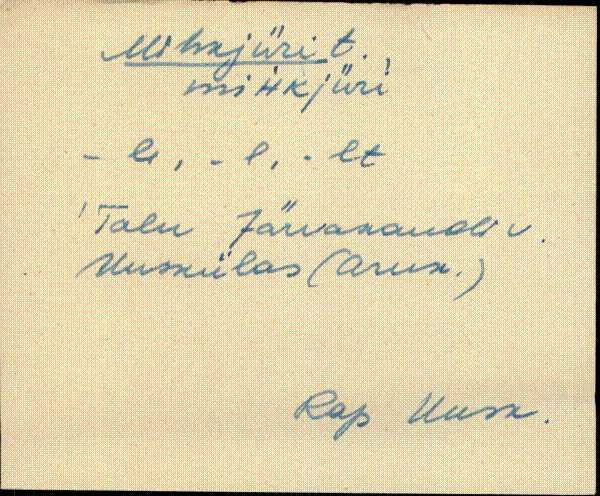 Mihkjüri t.
miHkjüri
- le, - l, - lt
'Talu Järvakandi v.
Uuskülas (Aruk.)
Rap Uusk.